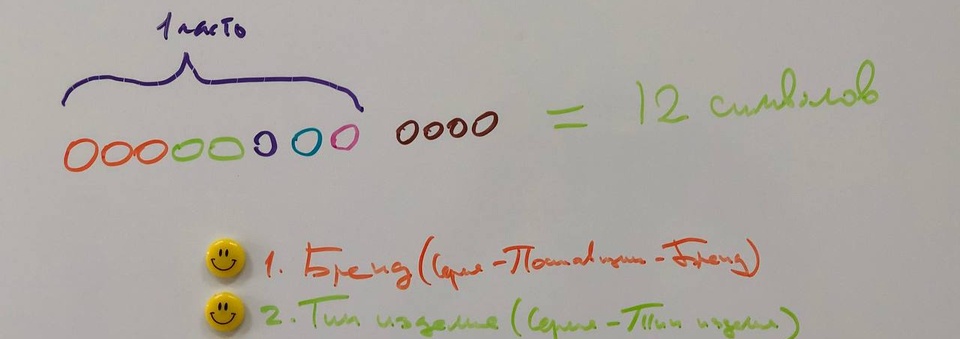 1 место
OOOOOOOO OOOO = 12 символов
1. Бренд (Серия - Поставщик - Бренд)
2. Тип изделия (Серия - Тип изделия)